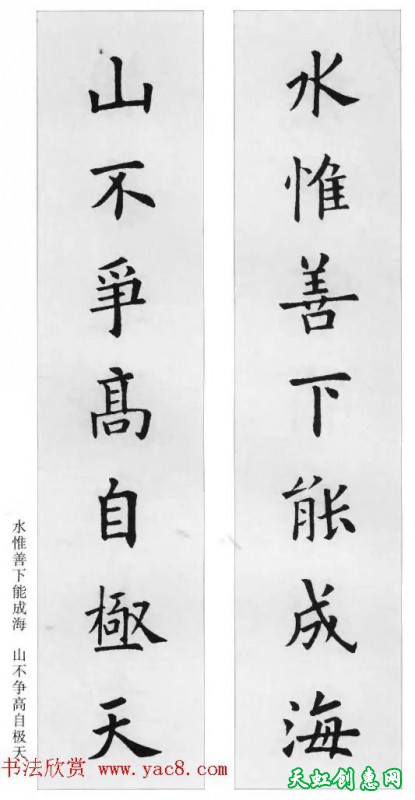 水惟善下能成海
山不爭髙自極天
水惟善下能成海 山不争高自极天
书法欣赏 www.yac8.com
天虹创惠网